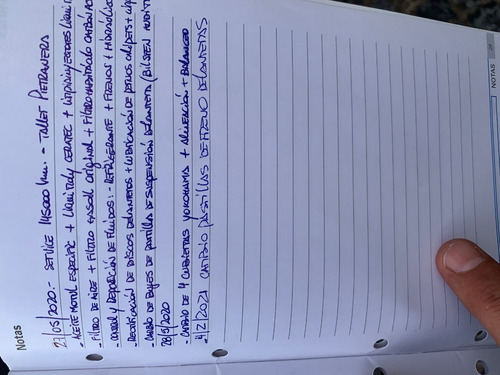 Notas
27/05/2020.- SERVICE 145000 Km. - TALLER PIETRANERA
- ACEITE MOTUL ESPECIFIC + LIQUI MOLY CERATEC + LIMPIAINYECTORES
- FILTRO DE AIRE + FILTRO GASOIL ORIGINAL + FILTRO HABITÁCULO CARBÓN
- CONTROL Y REPOSICIÓN DE FLUIDOS: - REFRIGERANTE + FRENOS + HIDRÁULICO
- RECTIFICACIÓN DE DISCOS DELANTEROS + LUBRICACIÓN DE PERNOS CALIPERS +
- CAMBIO DE BUJES DE PARRILLA DE SUSPENSIÓN DELANTERA (BILSTEIN
28/5/2020
- CAMBIO DE 4 CUBIERTAS YOKOHAMA + ALINEACIÓN + BALANCEO
4/2/2021 CAMBIO PASTILLAS DE FRENO DELANTERAS
NOTAS